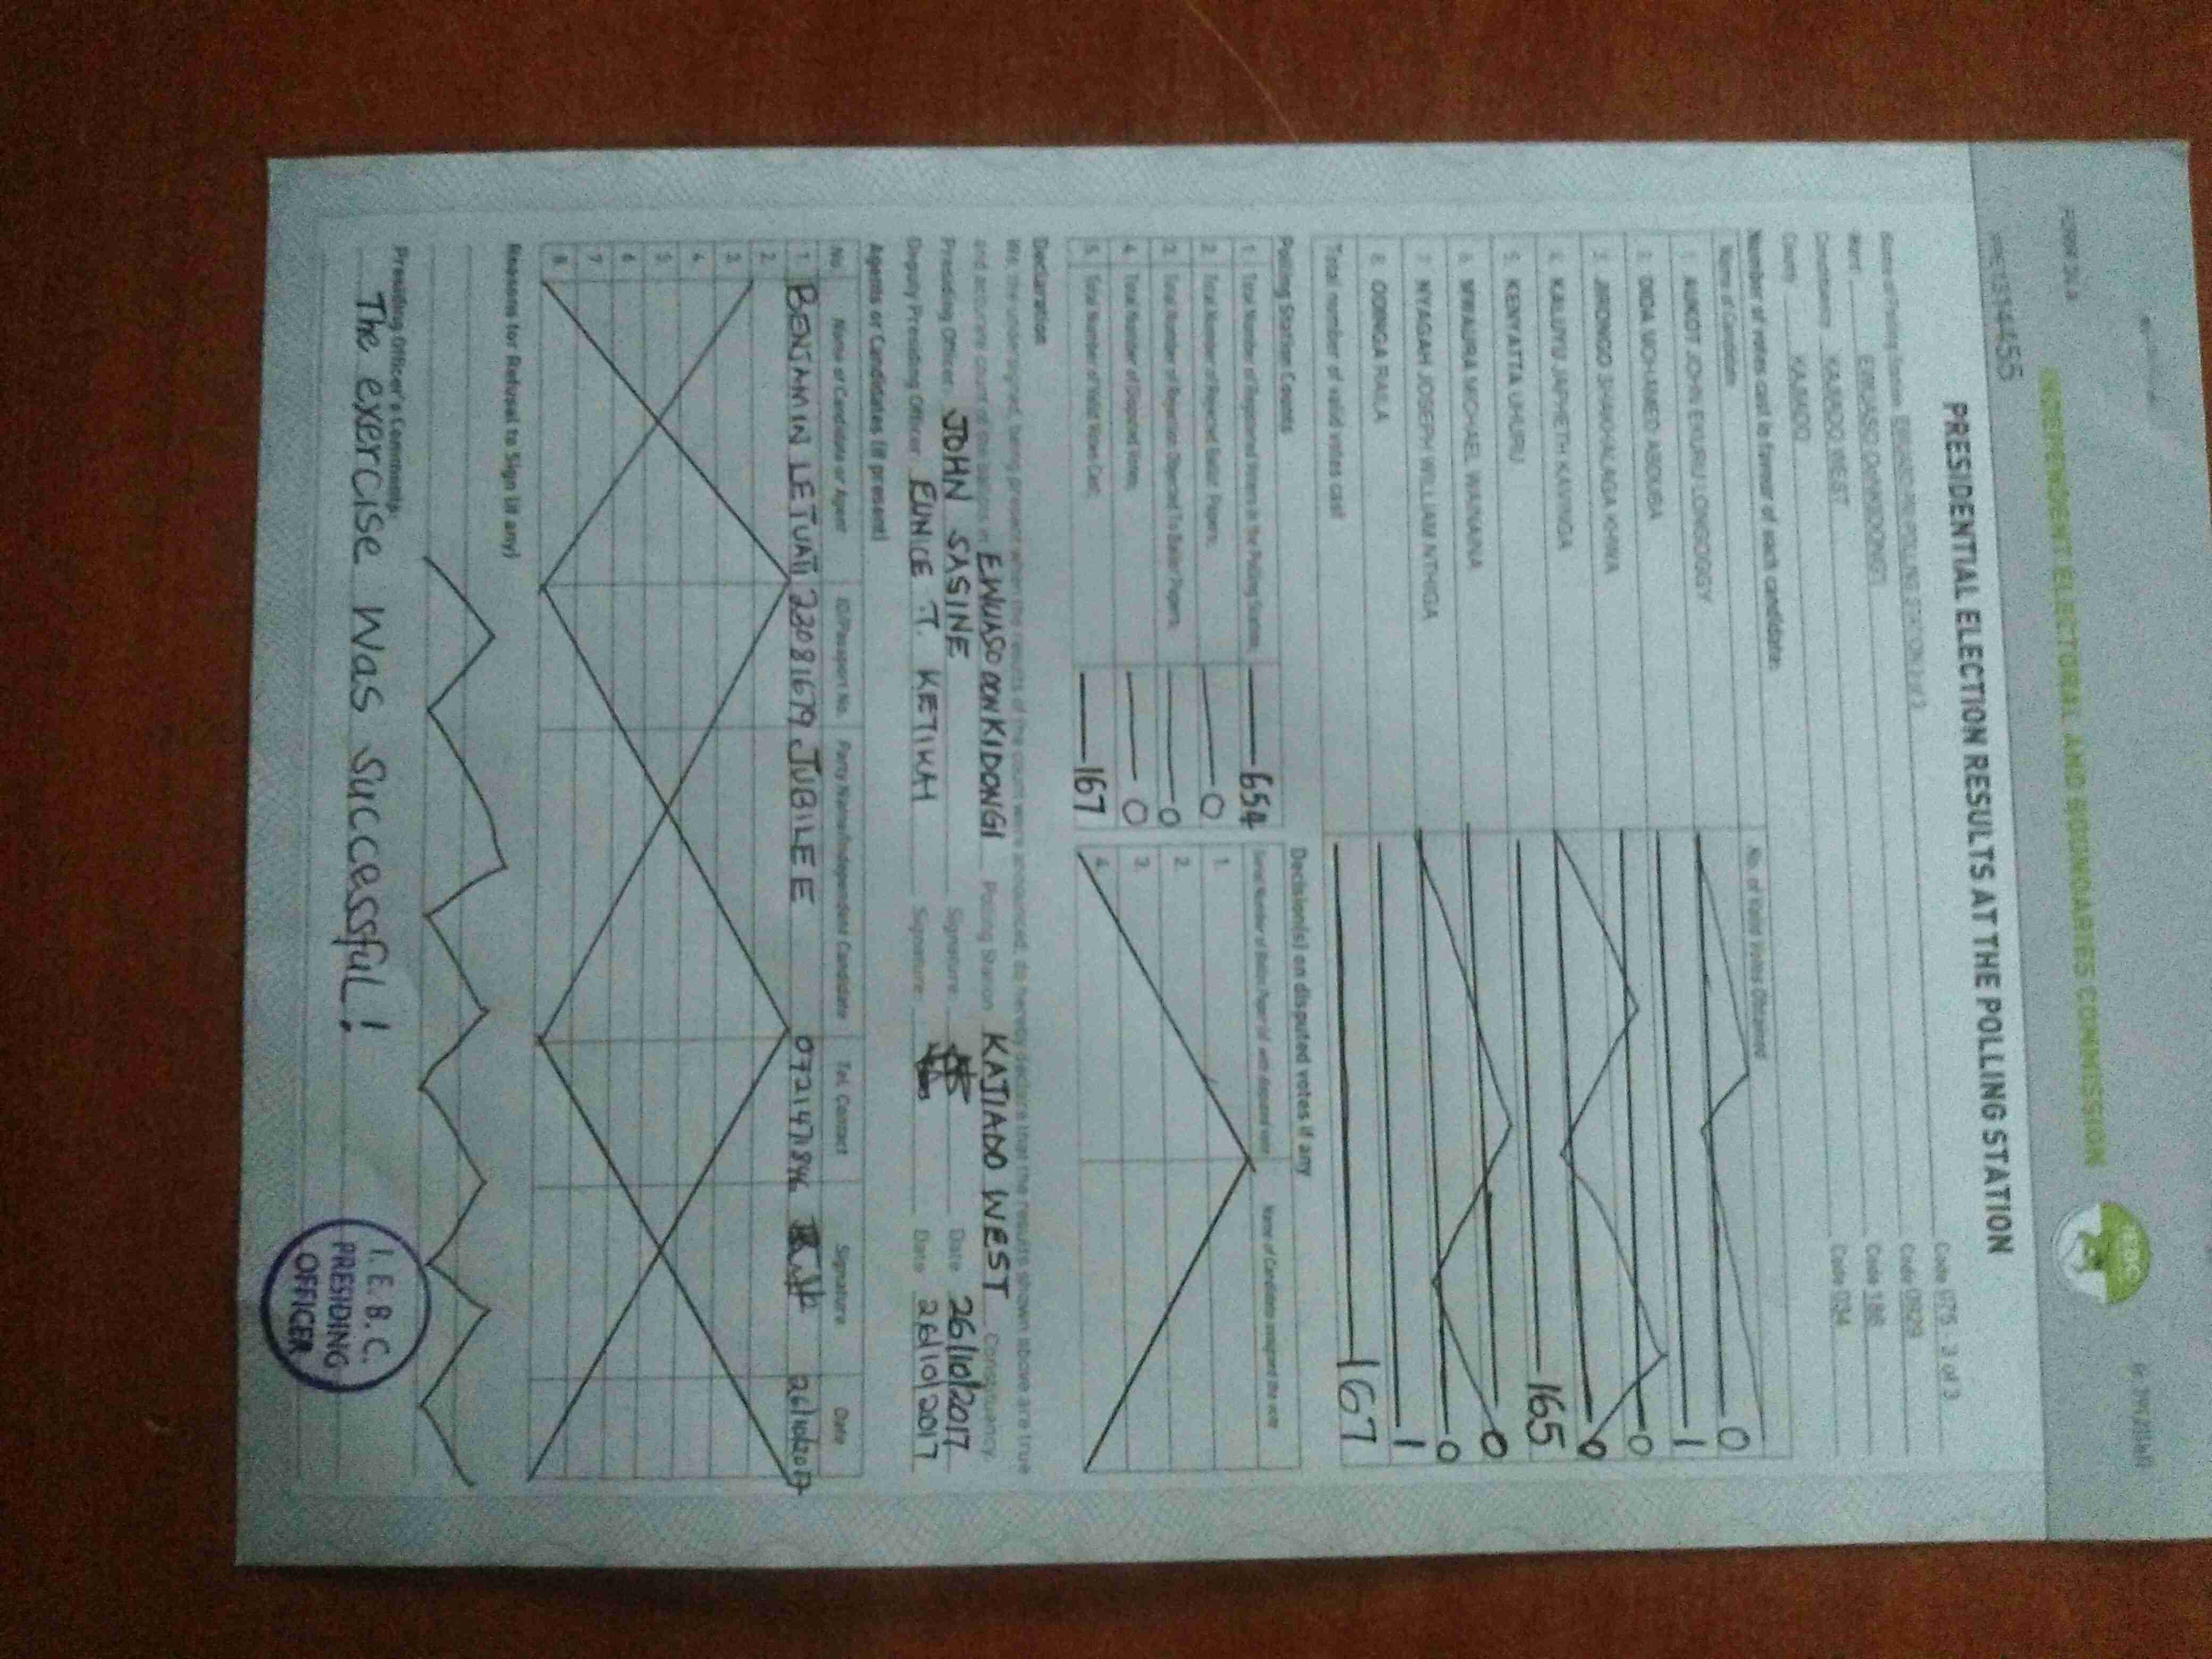 INDEPENDENT ELECTORAL AND BOUNDARIES COMMISSION
FORM 34 A
IEBC
PRESIDENTIAL ELECTION RESULTS AT THE POLLING STATION
Name of Polling Station POLLING STATION Code 075 - 3 of 3
Ward EWUASO OONKIDONG'I Code 0929
Constituency KAJIADO WEST Code 186
County KAJIADO Code 034
Number of votes cast in favour of each candidate:
Name of Candidate No. of Valid Votes Obtained
1. AUKOT JOHN EKURU LONGOGGY 0
2. DIDA MOHAMED ABDUBA 1
3. JIRONGO SHAKHALAGA KHWA 0
4. KALUYU JAPHETH KAVINGA 0
5. KENYATTA UHURU 165
6. MWAURA MICHAEL WAINAINA 0
7. NYAGAH JOSEPH WILLIAM NTHIGA 0
8. ODINGA RAILA 1
Total number of valid votes cast 167
Polling Station Counts
1. Total Number of Registered Voters in the Polling Station 654
2. Total Number of Rejected Ballot Papers 0
3. Total Number of Rejection Objected To Ballot Papers 0
4. Total Number of Disputed Votes 0
5. Total Number of Valid Votes Cast 167
Decision(s) on disputed votes if any
Serial Number of Ballot Paper (s) with disputed vote Name of Candidate assigned the vote
1.
2.
3.
4.
Declaration
We, the undersigned, being present when the results of the count were announced, do hereby declare that the results shown above are true
and accurate count of the ballots in EWUASO OONKIDONGI Polling Station KAJIADO WEST Constituency.
Presiding Officer: JOHN SASINE Signature: Date 26/10/2017
Deputy Presiding Officer: EUNICE T. KETIKAH Signature: Date 26/10/2017
Agents or Candidates (if present)
No. Name of Candidate or Agent ID/Passport No. Party Name/Independent Candidate Tel. Contact Signature Date
1. BENJAMIN LETUATI 22081679 JUBILEE 0721471846 26/10/2017
2.
3.
4.
5.
6.
7.
8.
Reasons for Refusal to Sign (if any)
Presiding Officer's Comments:
The exercise was successful!
I. E. B. C.
PRESIDING
OFFICER